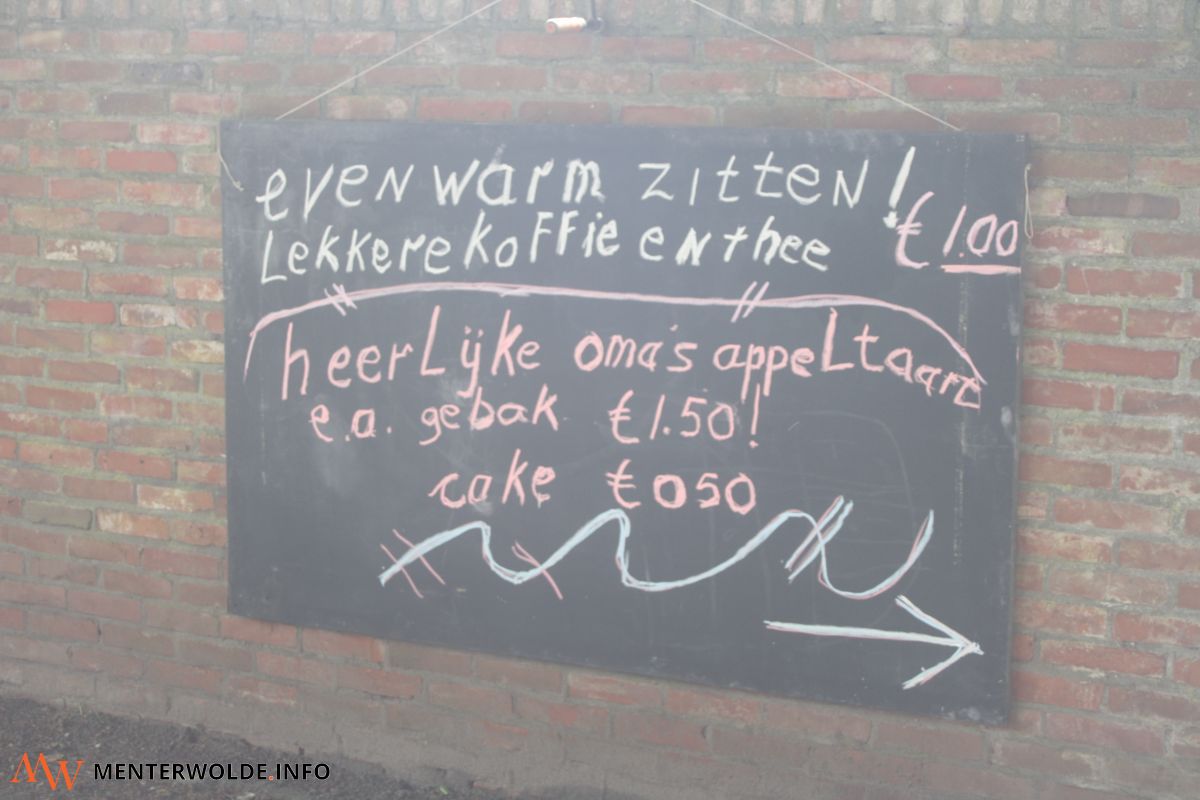 even warm zitten!
Lekkere koffie en thee €1.00
heerLijke oma's appeLtaart
e.a. gebak €1.50!
cake €050
MW MENTERWOLDE.INFO